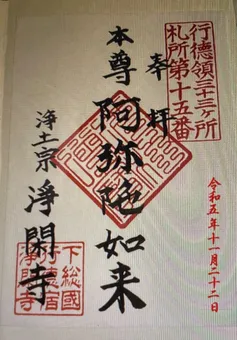 行徳領三十三ヶ所
札所第十五番
奉拝
本尊 阿弥陀如来
浄土宗 淨閑寺
下総國
行徳宿
浄閑寺
令和五年十一月二十二日